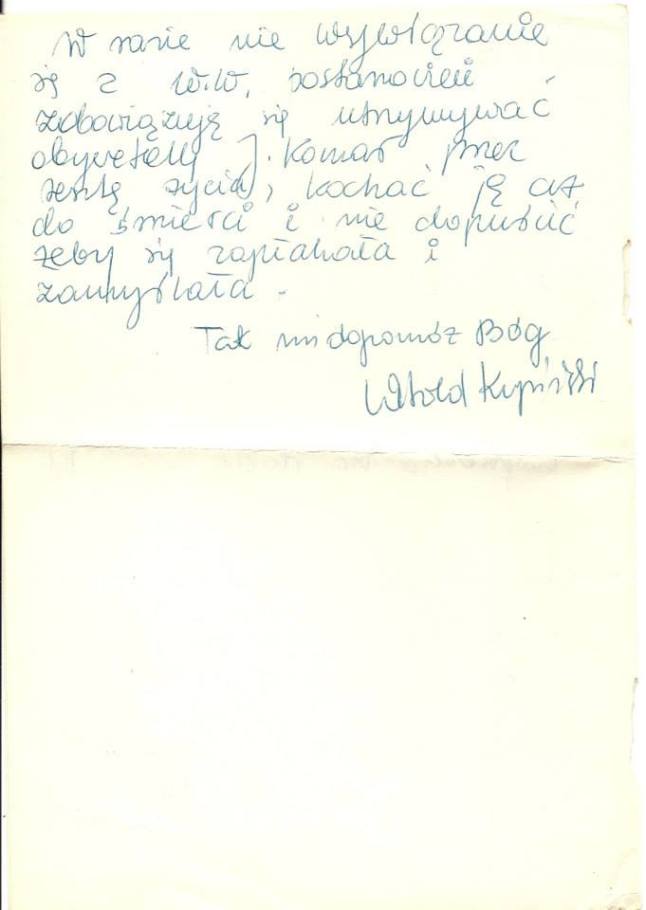 W razie nie wywiązanie
się z w.w. postanowień
zobowiązuję się utrzymywać
obywatelkę J. Komar przez
resztę życia, kochać ją aż
do śmierci i nie dopuścić
żeby się zapłakała i
zamyślała -
Tak mi dopomóż Bóg
Witold